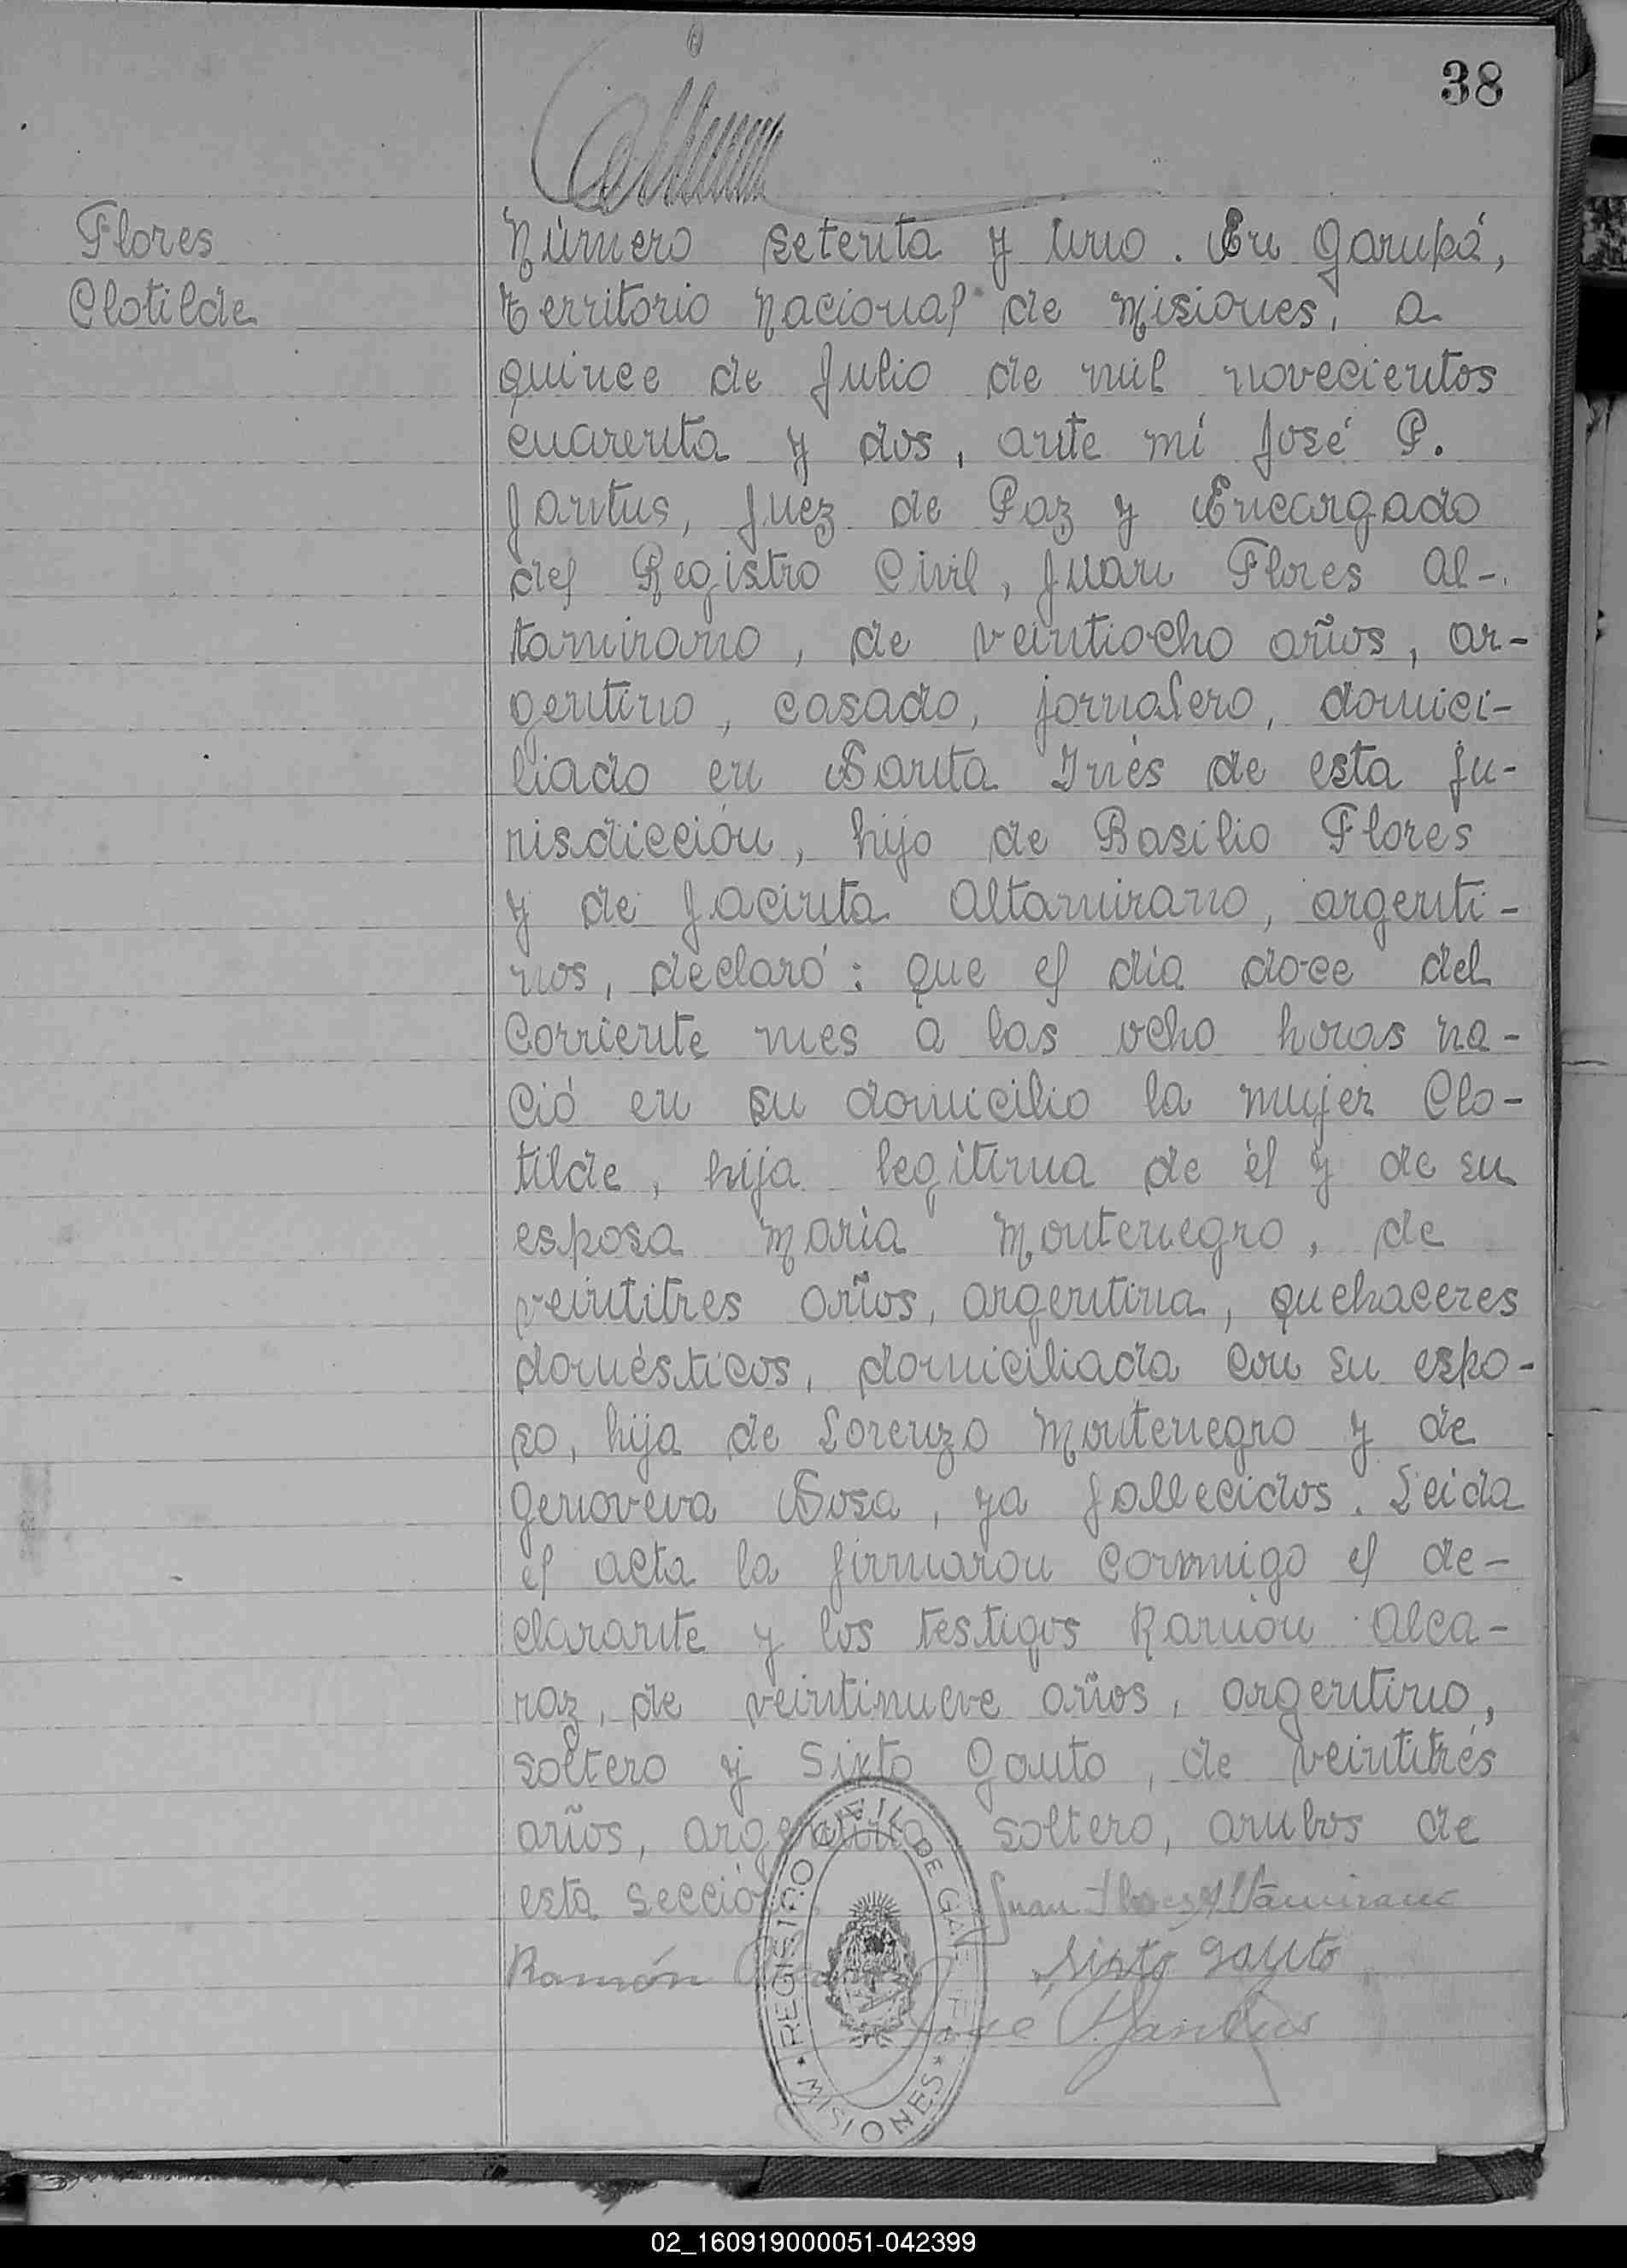 38
Flores
Clotilde
Número setenta y uno. En Garupá,
territorio Nacional de Misiones, a
quince de Julio de mil novecientos
cuarenta y dos, ante mí José P.
Jantus, Juez de Paz y Encargado
del Registro Civil, Juan Flores Al-
tamirano, de veintiocho años, ar-
gentino, casado, jornalero, domici-
liado en Santa Inés de esta ju-
risdicción, hijo de Basilio Flores
y de Jacinta Altamirano, argenti-
nos, declaró: que el día doce del
corriente mes a las ocho horas na-
ció en su domicilio la mujer Clo-
tilde, hija legitima de él y de su
esposa María Montenegro, de
veintitres años, argentina, quehaceres
domésticos, domiciliada con su espo-
so, hija de Lorenzo Montenegro y de
Genoveva Sosa, ya fallecidos. Leida
el acta la firmaron conmigo el de-
clarante y los testigos Ramón Alca-
raz, de veintinueve años, argentino,
soltero y Sixto Gauto, de veintitrés
años, argentino, soltero, ambos de
esta sección.
Juan Flores Altamirano
Ramón Alcaraz
Sixto Gauto
José P. Jantus
REGISTRO CIVIL DE GARUPÁ
* MISIONES *
02_160919000051-042399